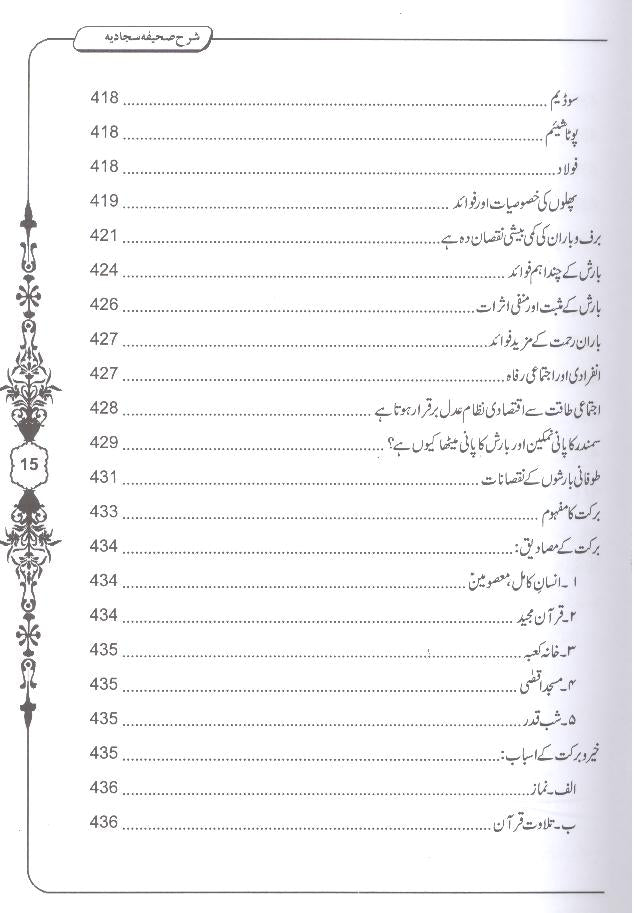 شرح صحیفہ سجادیہ
سوڈیم ........ 418
پوٹاشیئم ........ 418
فولاد ........ 418
پھلوں کی خصوصیات اور فوائد ........ 419
برف و باران کی کمی بیشی نقصان دہ ہے ........ 421
بارش کے چند اہم فوائد ........ 424
بارش کے مثبت اور منفی اثرات ........ 426
باران رحمت کے مزید فوائد ........ 427
انفرادی اور اجتماعی رفاہ ........ 427
اجتماعی طاقت سے اقتصادی نظام عدل برقرار ہوتا ہے ........ 428
سمندر کا پانی نمکین اور بارش کا پانی میٹھا کیوں ہے؟ ........ 429
طوفانی بارشوں کے نقصانات ........ 431
برکت کا مفہوم ........ 433
برکت کے مصادیق: ........ 434
۱۔ انسانِ کامل، معصومینؑ ........ 434
۲۔ قرآن مجید ........ 434
۳۔ خانہ کعبہ ........ 435
۴۔ مسجد اقصٰی ........ 435
۵۔ شب قدر ........ 435
خیر و برکت کے اسباب: ........ 435
الف۔ نماز ........ 436
ب۔ تلاوت قرآن ........ 436
15